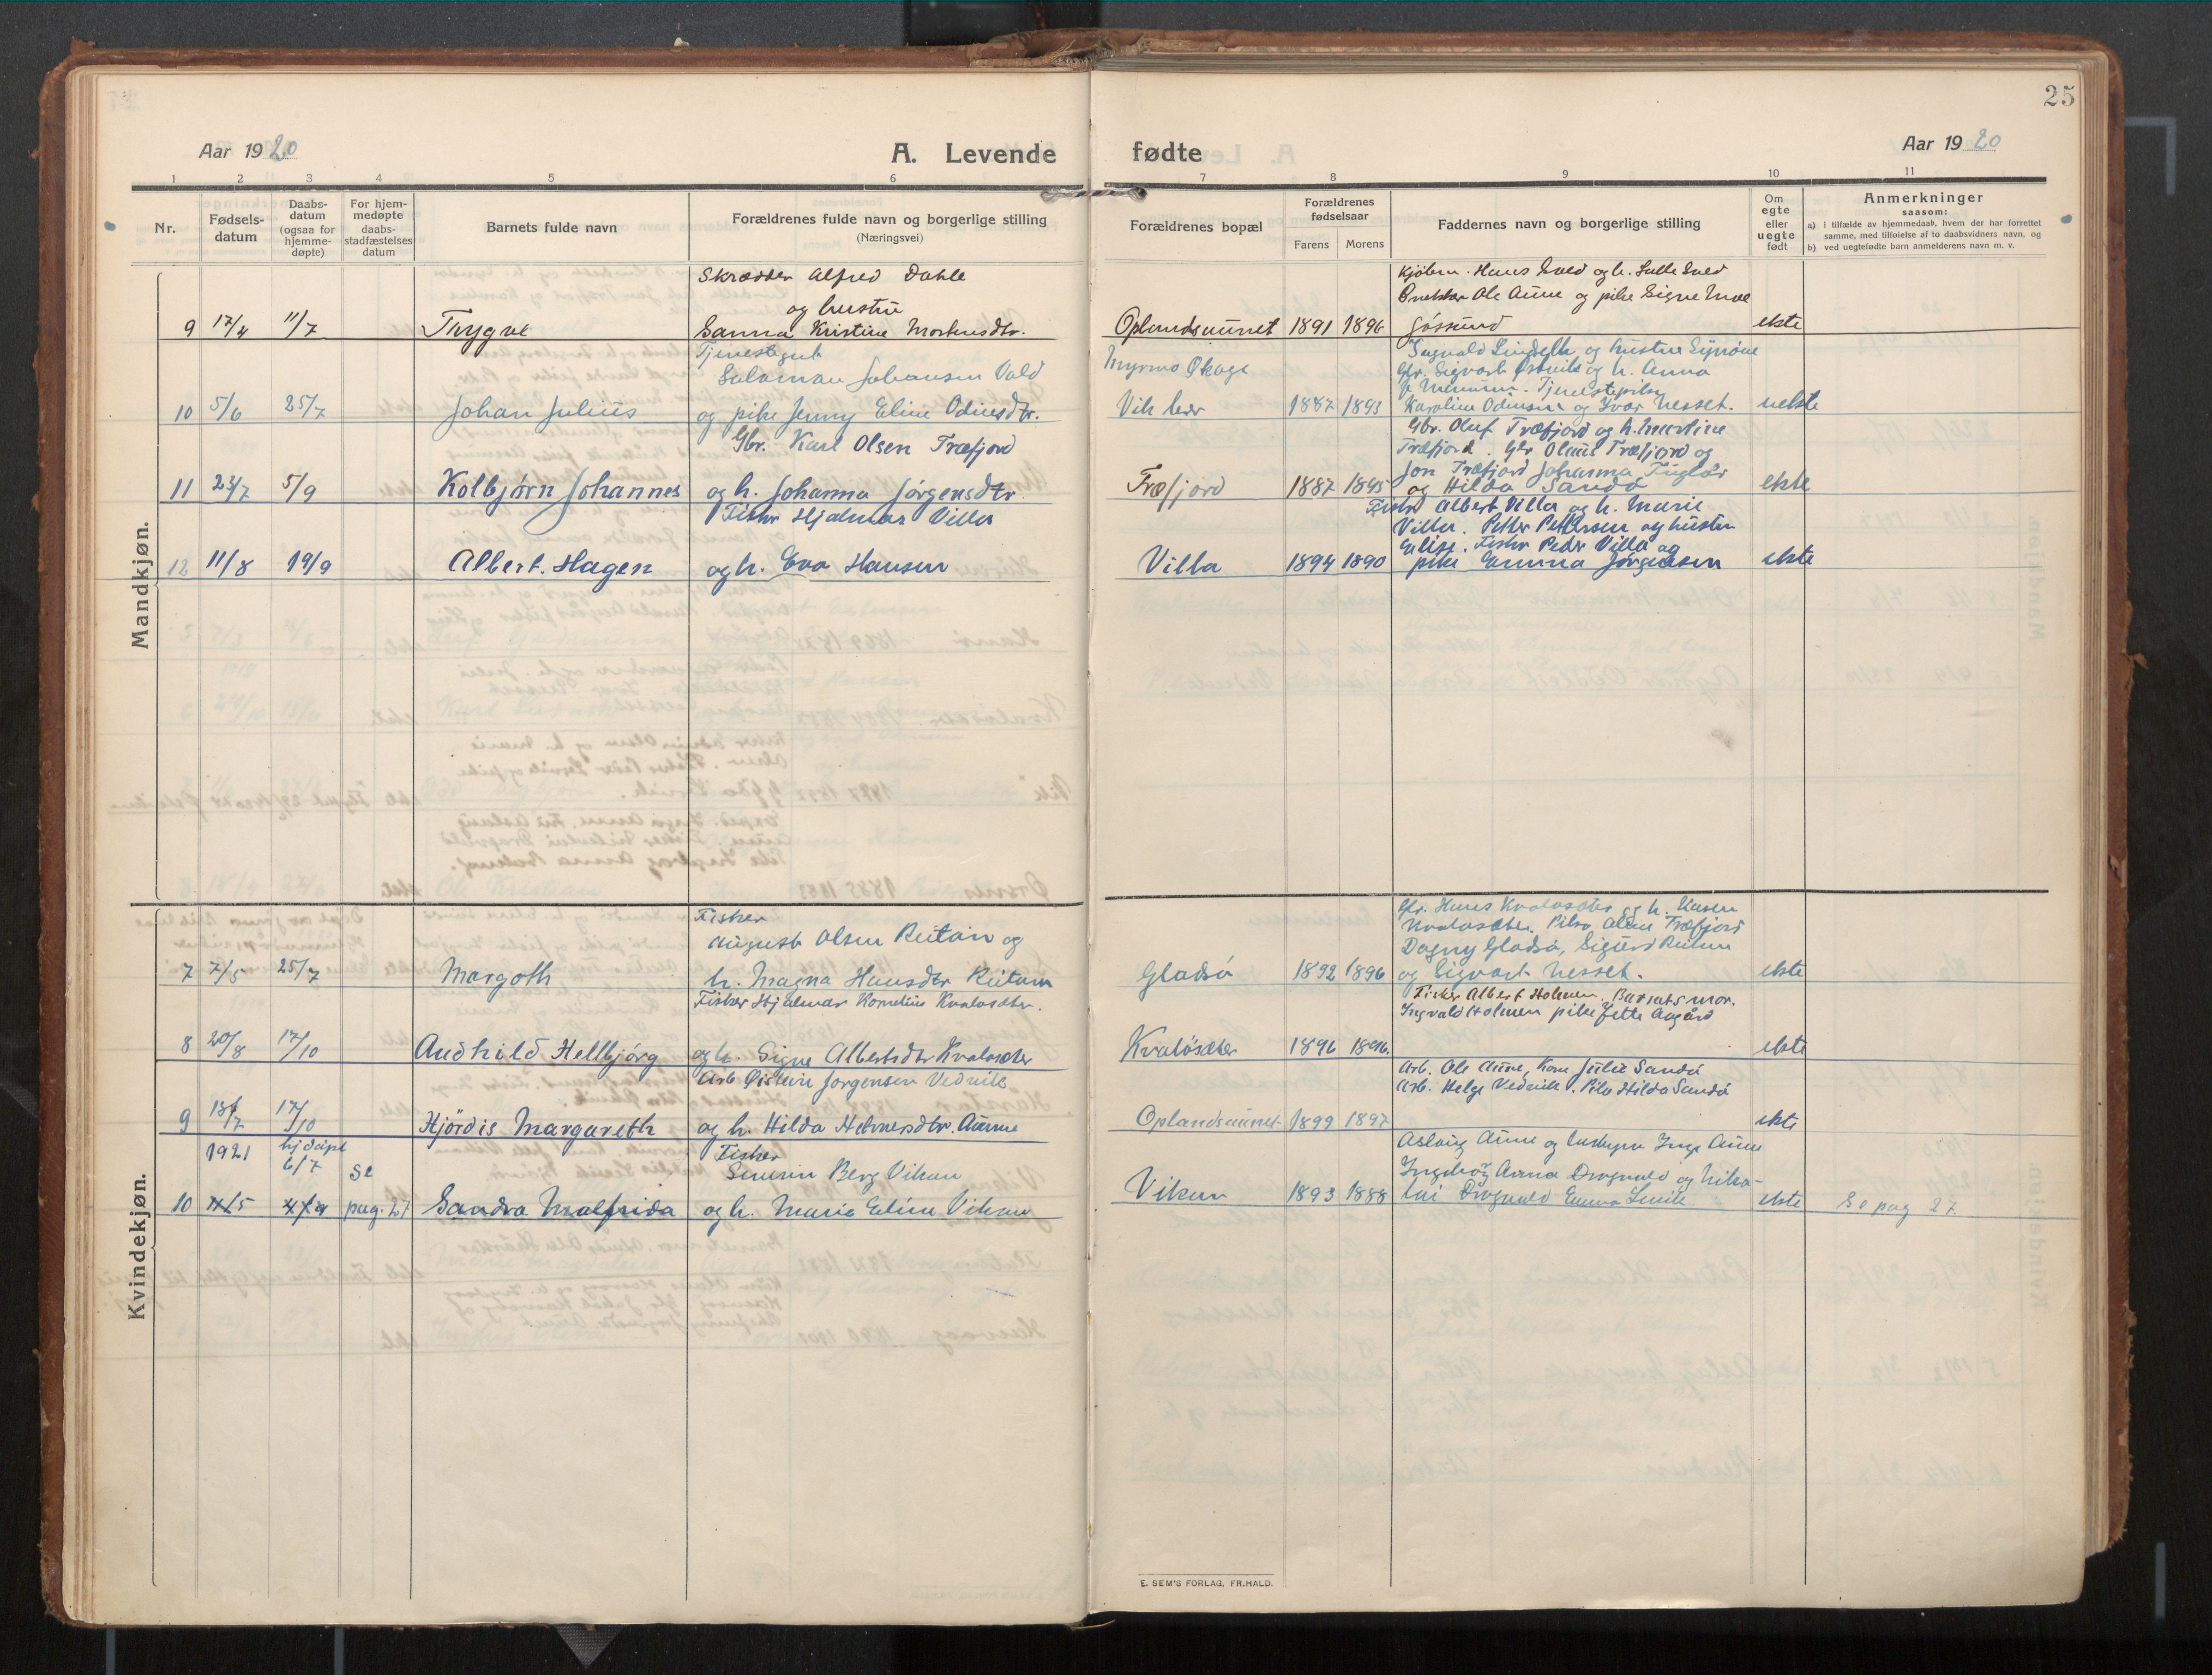 25
Aar 1920
A. Levende
fødte
Aar 1920
1 2 3 4 5 6 7 8 9 10 11
Nr.
Fødsels-
datum
Daabs-
datum
(ogsaa for
hjemme-
døpte)
For hjem-
medøpte
daabs-
stadfæstelses
datum
Barnets fulde navn
Forældrenes fulde navn og borgerlige stilling
(Næringsvei)
Forældrenes bopæl
Forældrenes
fødselsaar
Farens
Morens
Faddernes navn og borgerlige stilling
Om
egte
eller
uegte
født
Anmerkninger
saasom:
a) i tilfælde av hjemmedaab, hvem der har forrettet
samme, med tilføielse af to daabsvidners navn, og
b) ved uegtefødte barn anmelderens navn m. v.
Mandkjøn.
Skrædder Alfred Dahle
og hustru
9 17/4 11/7 Trygve Sanna Kristine Morkusdtr.
Kjøbm. Hans Sved og h. Lulle Sved
Ole Aune og pike Signe Moe
Oplandsaunet 1891 1896 Jössund ekte
Tjenestegut
Salamon Johansen Vold
10 5/6 25/7 Johan Julius og pike Jenny Eline Odinsdtr.
Myrmo Skage
Vik leir 1887 1893
Lindseth og hustru Synöve
Gbr. Sigvart Östvik og h. Anna
Tjenestepike
Karoline Odinsen og Ivar Nesset. uekte
Gbr. Karl Olsen Træfjord
11 23/7 5/9 Kolbjørn Johannes og h. Johanna Jørgensdtr.
Gbr. Oluf Træfjord og h. Martine
Træfjord. Gbr. Olaus Træfjord og
Jon Træfjord Johanna Fuglår
Træfjord 1887 1895 og Hilda Sandö ekte
Fisker Hjalmar Villa
12 11/8 19/9 Albert. Hagen og h. Eva Hansen
Fisker Albert Villa og h. Marie
Villa. Petter Pettersen og hustru
Elise. Fisker Peder Villa og
Villa 1894 1890 pike Emma Jørgensen ekte
Kvindekjøn.
Fisker
August Olsen Reitan og
7 7/5 25/7 Margoth h. Magna Hansdtr Reitan
Gbr. Hans Kvalosæter og h. Karen
Kvalosæter. Pike Aline Træfjord
Dagny Gladsö, Sigurd Reitan
Gladsö 1892 1896 og Sigvart Nesset. ekte
Fisker Hjalmar Kornelius Kvalosæter.
8 20/8 17/10 Audhild Hellbjörg og h. Signe Albertsdtr Kvalosæter
Fisker Albert Holmen. Barnets mor.
Ingvald Holmen pike Jette Aagård
Kvalösæter 1896 1896. ekte
Arb Øistein Jorgensen Vedvik
9 18/7 17/10 Hjördis Margareth og h. Hilda Helmersdtr. Aunne
Arb. Ole Aune, Kone Julie Sandö
Arb. Helge Vedvik. Pike Hilda Sandö
Oplandsaunet 1899 1897 ekte
1921 hjdöpt
6/7 Se
Fisker
Simon Berg Vikan
10 4/5 pag. 27 Sandra Malfrida og h. Marie Eline Vikan
Aslaug Aune og Inge Aune
Ingeborg Anna Dragvald og Nikolai
Dragvald Emma Lervik
Vikan 1893 1888 ekte Se pag 27.
E. SEM'S FORLAG, FR.HALD.